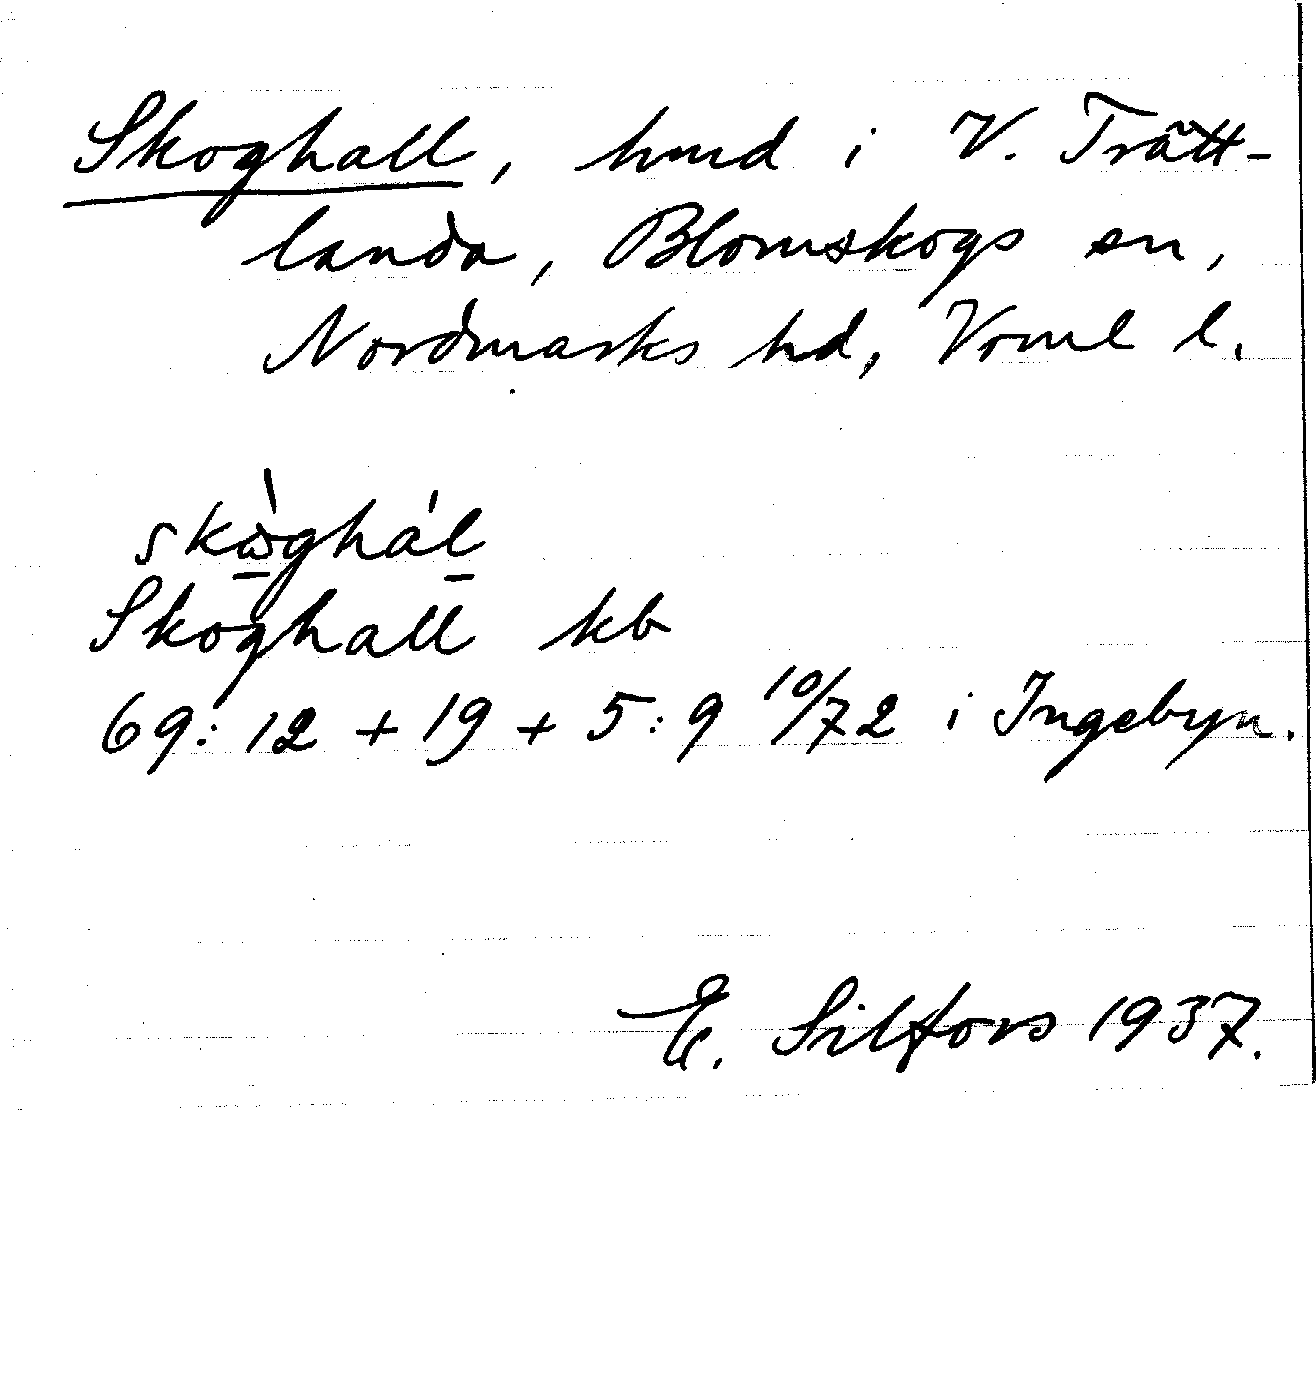 Skoghall, hmd i V. Trätt-
landa, Blomskogs sn,
Nordmarks hd, Vrml l.
skὼghál
Skoghall kb
69: 12 + 19 + 5:9 10/72 i Ingebyn.
E. Silfors 1937.